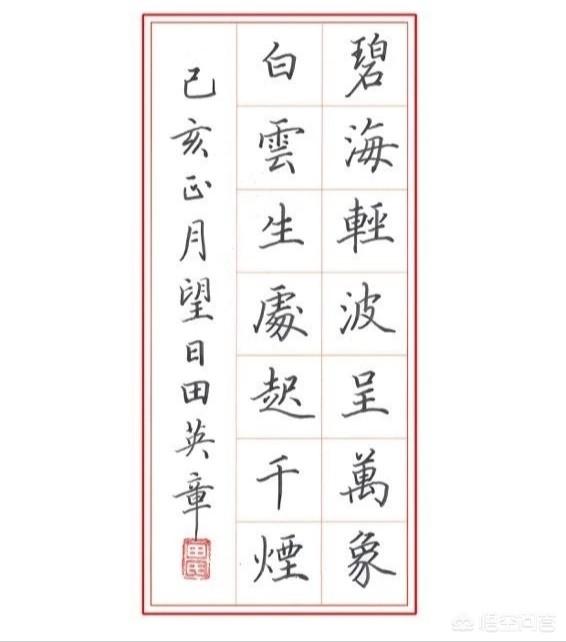 碧海輕波呈萬象
白雲生處起千煙
己亥正月望日田英章
田氏
悟空问答